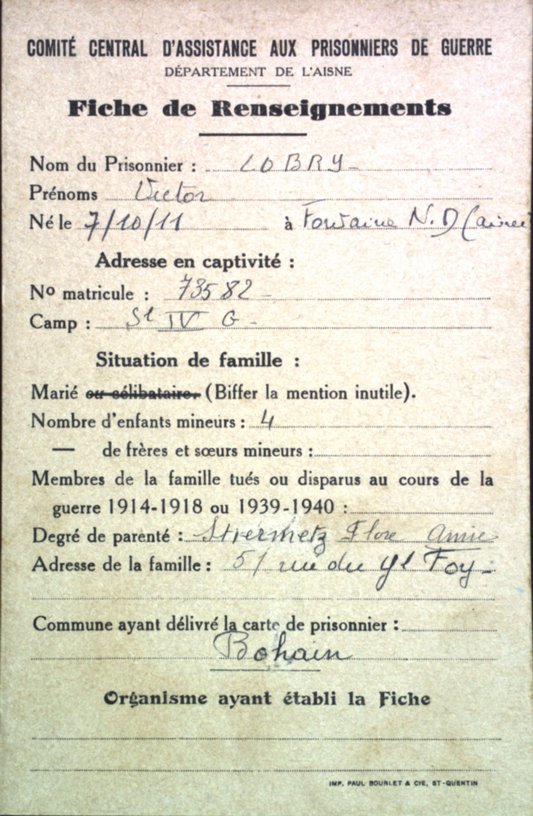 COMITÉ CENTRAL D'ASSISTANCE AUX PRISONNIERS DE GUERRE
DÉPARTEMENT DE L'AISNE
Fiche de Renseignements
Nom du Prisonnier : LOBRY
Prénoms Victor
Né le 7/10/11 à Fontaine N.D (aisne)
Adresse en captivité :
No matricule : 73582
Camp : St IV G
Situation de famille :
Marié ou célibataire. (Biffer la mention inutile).
Nombre d'enfants mineurs : 4
— de frères et sœurs mineurs :
Membres de la famille tués ou disparus au cours de la
guerre 1914-1918 ou 1939-1940 :
Degré de parenté : Flore
Adresse de la famille : 51 rue du Gl Foy
Commune ayant délivré la carte de prisonnier :
Bohain
Organisme ayant établi la Fiche
IMP. PAUL BOURLET & CIE, ST-QUENTIN